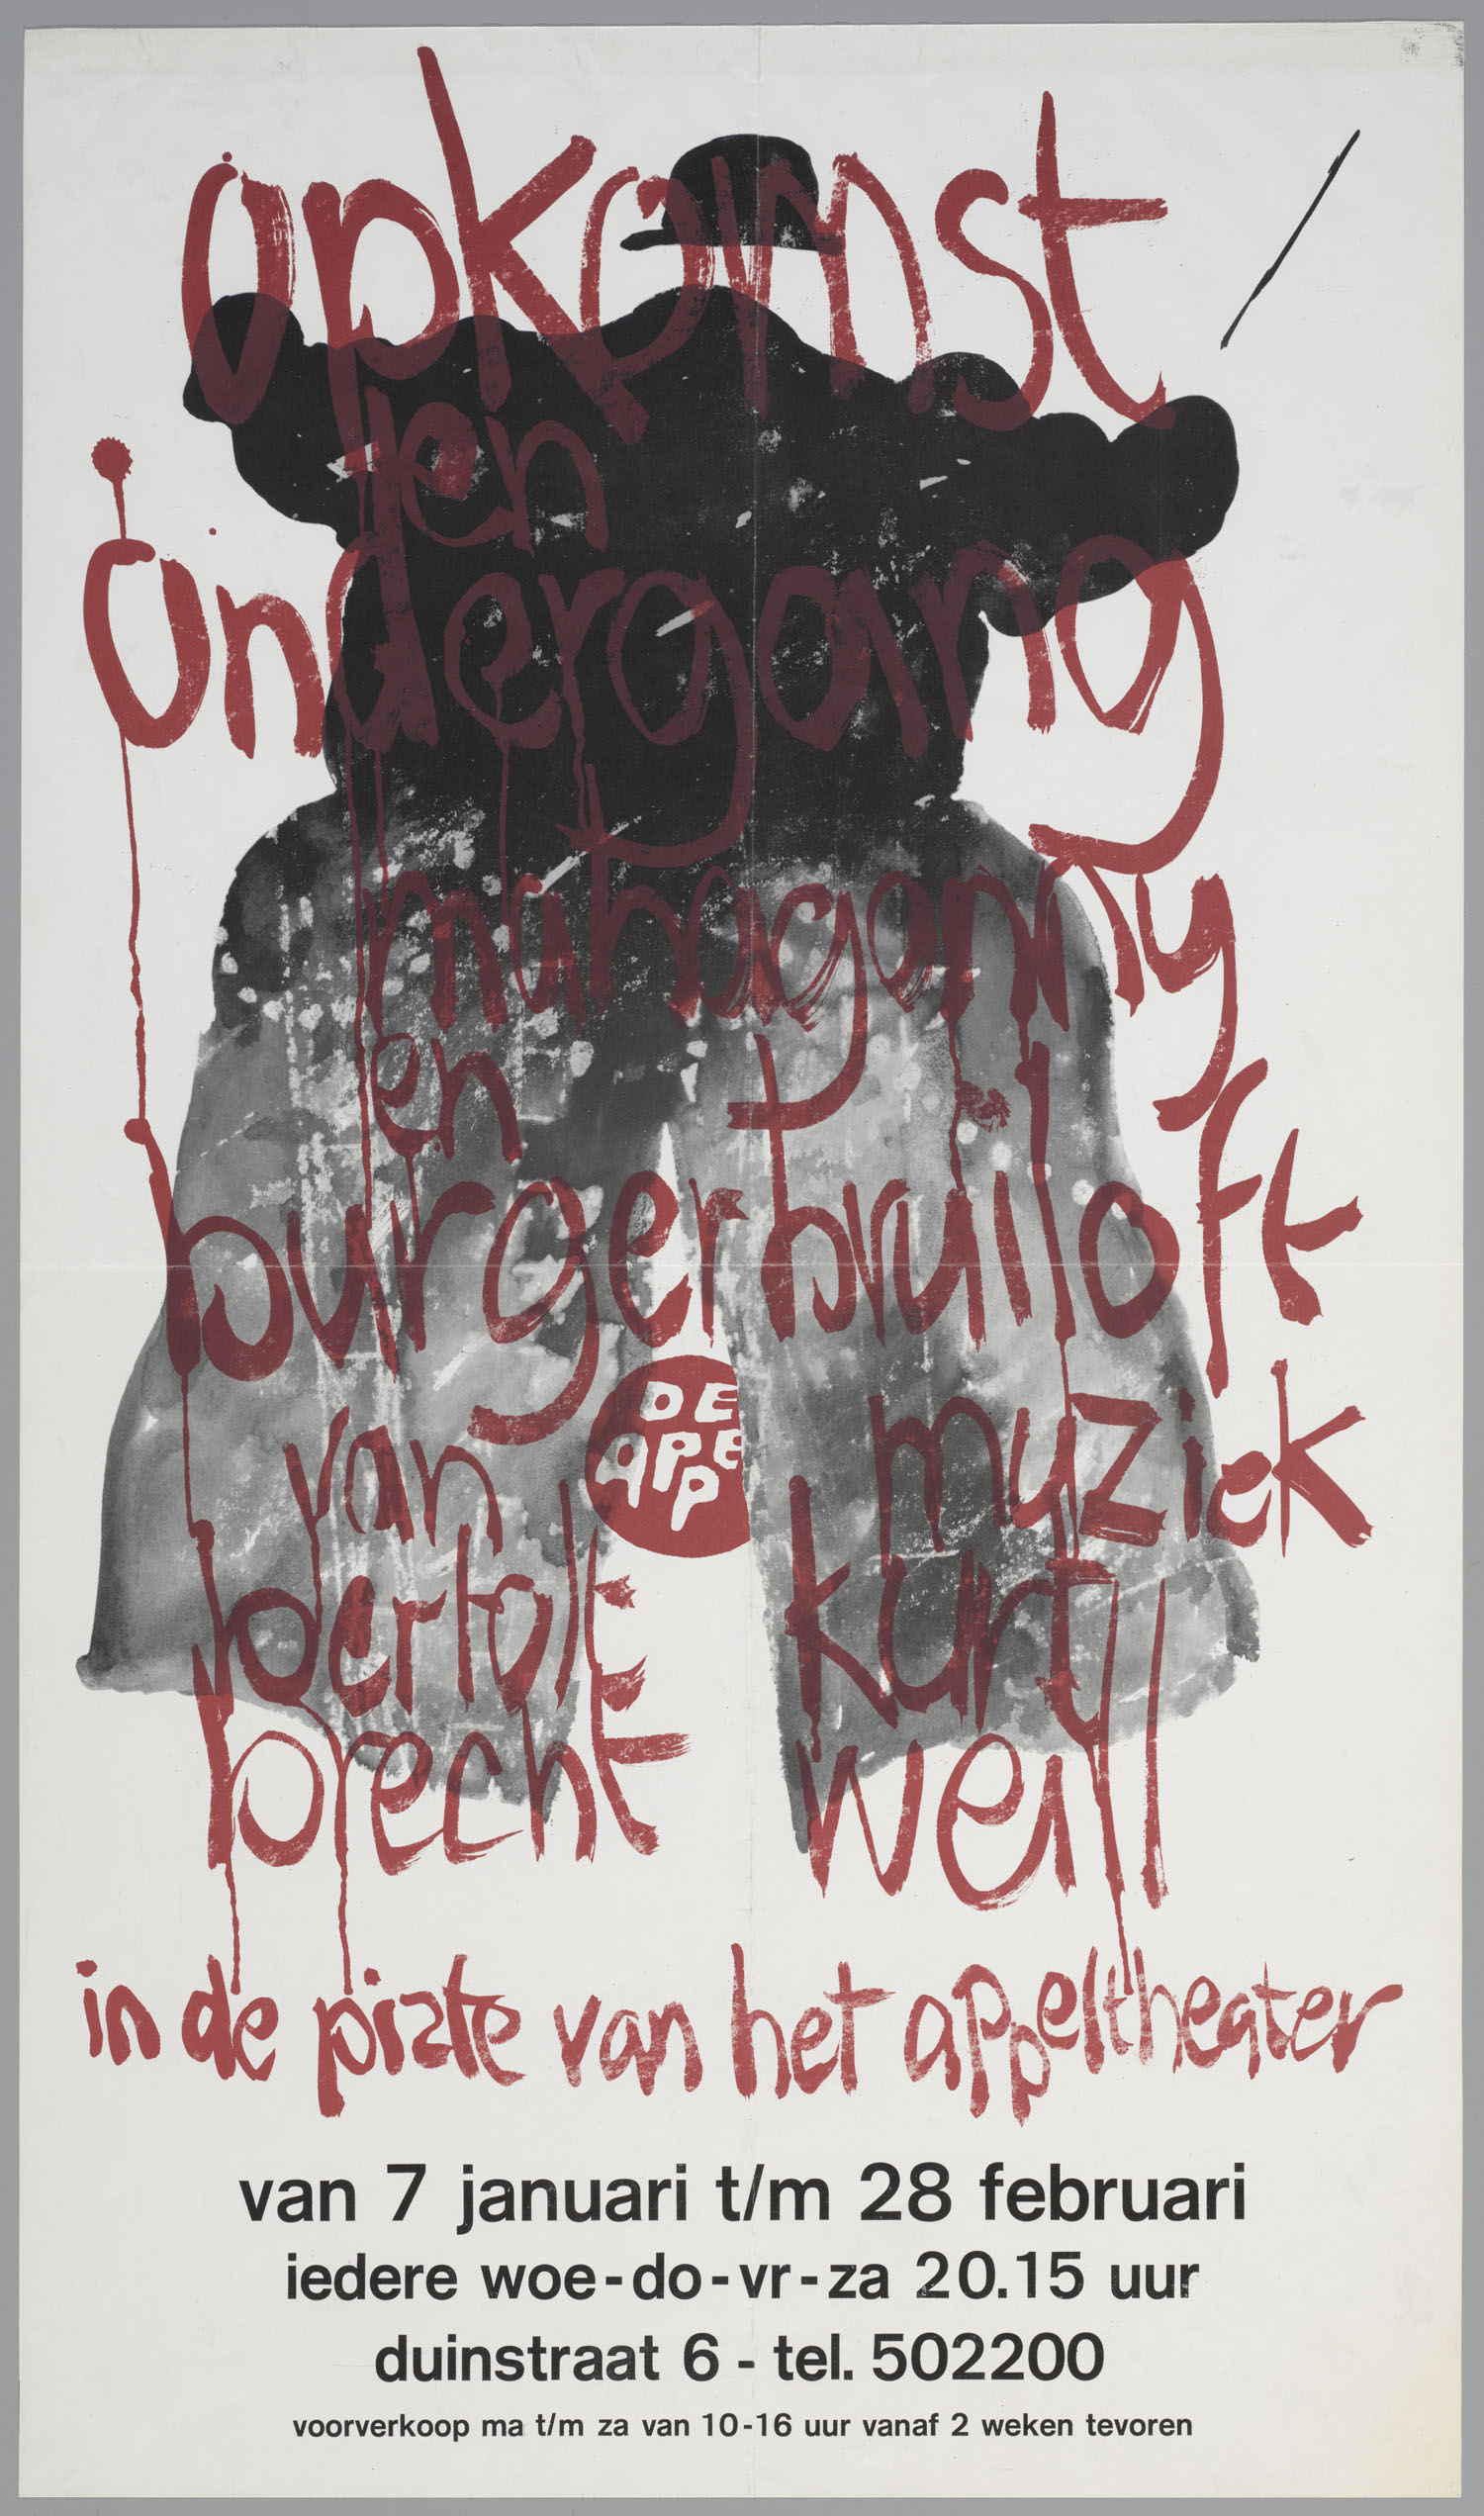 opkomst /
en
ondergang
mahagonny
en
burgerbruiloft
DE
APPE
van
bertolt
brecht
muziek
kurt
weill
in de piste van het appeltheater
van 7 januari t/m 28 februari
iedere woe-do-vr-za 20.15 uur
duinstraat 6 - tel. 502200
voorverkoop ma t/m za van 10-16 uur vanaf 2 weken tevoren